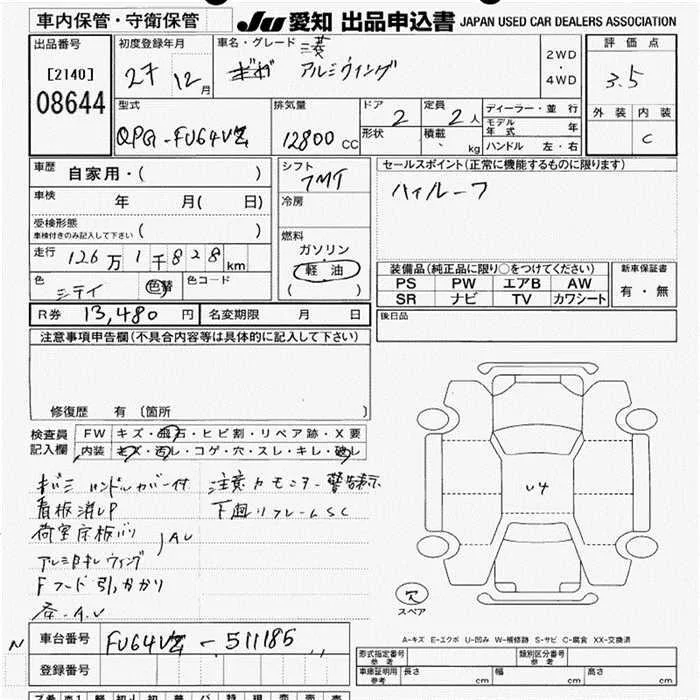 車内保管・守衛保管
JU 愛知 出品申込書 JAPAN USED CAR DEALERS ASSOCIATION
出品番号
[2140]
08644
初度登録年月
27 12月
車名・グレード 三菱
アルミウィング
2WD
・
4WD
評価点
3.5
外装 内装
C
型式
排気量
12800 CC
ドア 2
形状
定員 2人
積載 kg
ディーラー・並行
モデル年式 年
ハンドル 左・右
車歴 自家用・( )
車検 年 月( 日)
受検形態
車検付きのみ記入して下さい ( )
走行 126万1千828km
色 シロイ 色替 色コード
シフト 7MT
冷房
燃料
ガソリン
・
軽油
( )
セールスポイント(正常に機能するものに限ります)
ハイルーフ
装備品(純正品に限り○をつけてください)
PS PW エアB AW
SR ナビ TV カワシート
新車保証書
有・無
R券 13,480円 名変期限 月 日
後日品
注意事項申告欄(不具合内容等は具体的に記入して下さい)
修復歴 有 〔箇所 〕
検査員記入欄
FW キズ・飛石・ヒビ割・リペア跡・X要
内装 キズ・汚レ・コゲ・穴・スレ・キレ・破レ
ハンドルカバー付
看板消しP
荷室床板バリ
AU
Fフード引っかかり
注意カモニター警告表示
下廻りフレームSC
U4
欠
スペア
A-キズ E-エクボ U-凹み W-補修跡 S-サビ C-腐食 XX-交換済
N
車台番号
511185
登録番号
形式指定番号 参考
類別区分番号 参考
車庫証明用 参考 長さ cm 幅 cm 高さ cm